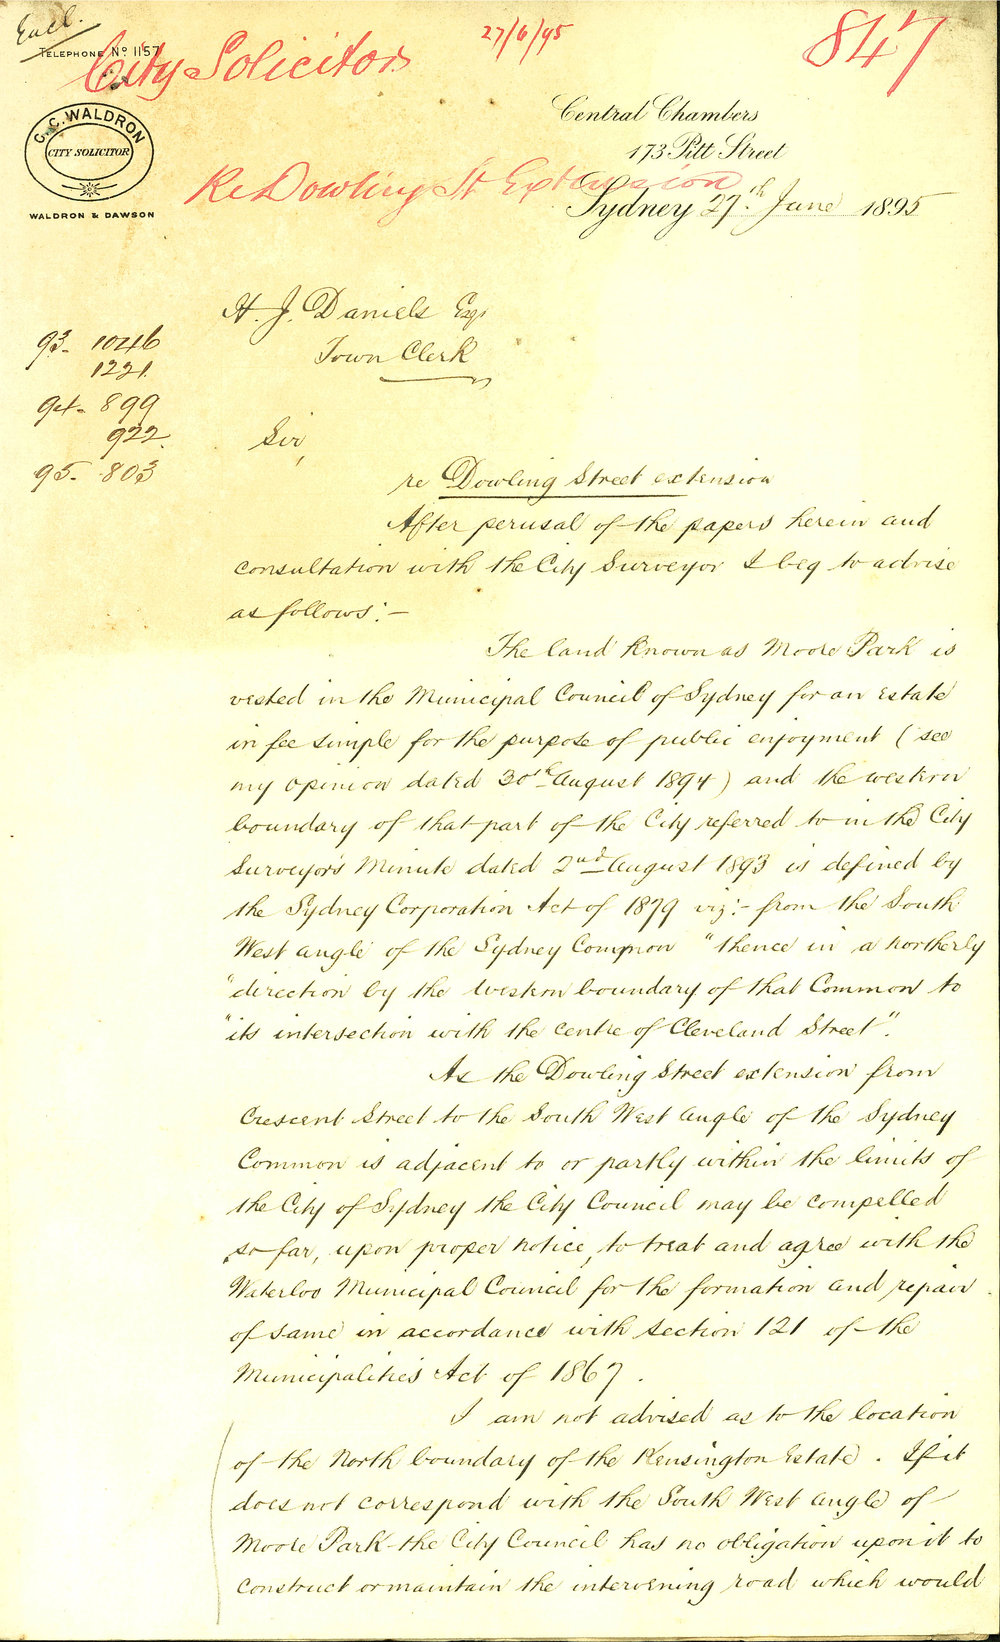 Encl.
27/6/95
847
TELEPHONE No 1157
City Solicitor
C.C. WALDRON
CITY SOLICITOR
WALDRON & DAWSON
Central Chambers
173 Pitt Street
Re Dowling St Extension
Sydney 27th June 1895
H. J. Daniels Esqr
Town Clerk
93- 1046
1221
94- 899
922
95- 803
Sir,
re Dowling Street extension
After perusal of the papers herein and
consultation with the City Surveyor I beg to advise
as follows:-
The land known as Moore Park is
vested in the Municipal Council of Sydney for an Estate
in fee simple for the purpose of public enjoyment (see
my opinion dated 30th August 1894) and the western
boundary of that part of the City referred to in the City
Surveyor's Minute dated 2nd August 1893 is defined by
the Sydney Corporation Act of 1879 viz:- from the South
West angle of the Sydney Common "thence in a northerly
"direction by the western boundary of that Common to
"its intersection with the centre of Cleveland Street".
As the Dowling Street extension from
Crescent Street to the South West angle of the Sydney
Common is adjacent to or partly within the limits of
the City of Sydney the City Council may be compelled
so far, upon proper notice, to treat and agree with the
Waterloo Municipal Council for the formation and repair
of same in accordance with section 121 of the
Municipalities Act of 1867.
I am not advised as to the location
of the North boundary of the Kensington Estate. If it
does not correspond with the South West angle of
Moore Park the City Council has no obligation upon it to
construct or maintain the intervening road which would